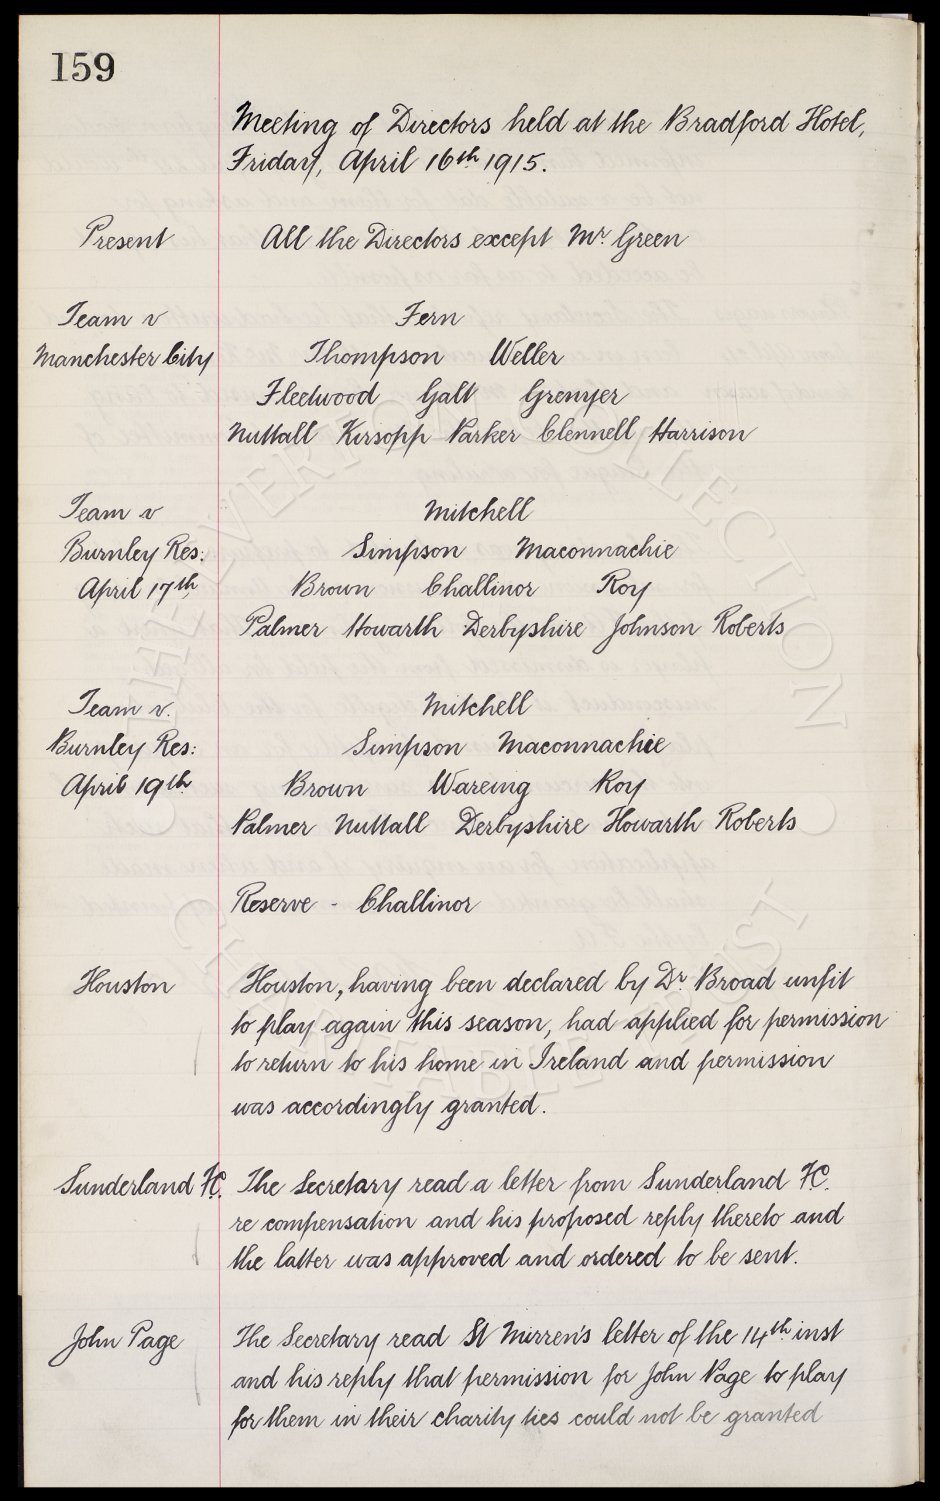 159
Meeting of Directors held at the Bradford Hotel,
Friday, April 16th 1915.
Present All the Directors except Mr. Green
Team v Fern
Manchester City Thompson Weller
Fleetwood Galt Grenyer
Nuttall Kirsopp Parker Clennell Harrison
Team v Mitchell
Burnley Res: Simpson Maconnachie
April 17th Brown Challinor Roy
Palmer Howarth Derbyshire Johnson Roberts
Team v. Mitchell
Burnley Res: Simpson Maconnachie
April 19th Brown Wareing Roy
Palmer Nuttall Derbyshire Howarth Roberts
Reserve - Challinor
Houston Houston, having been declared by Dr. Broad unfit
to play again this season, had applied for permission
to return to his home in Ireland and permission
was accordingly granted.
Sunderland FC. The Secretary read a letter from Sunderland FC.
re compensation and his proposed reply thereto and
the latter was approved and ordered to be sent.
John Page The Secretary read St Mirren's letter of the 14th inst
and his reply that permission for John Page to play
for them in their charity ties could not be granted
THE EVERTON COLLECTION
CHARITABLE TRUST